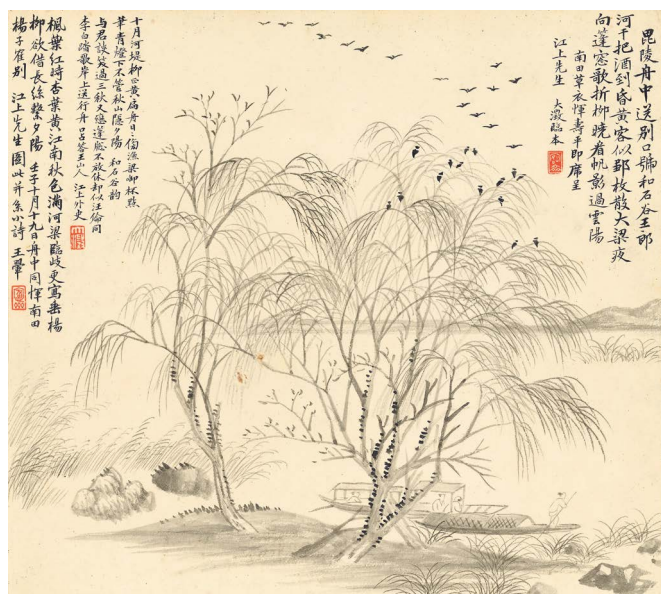 毘陵舟中送別口號和石谷王郎
河干把酒到昏黃客似鄒枚散大梁夜
向蓬窓歌折柳曉看帆影過雲陽
南田草衣惲壽平即席呈
江上先生 大澂臨本
十月河堤柳正黃扁舟日日傍漁梁
華青燈下不管秋山隱夕陽 和石谷韵
与君談笑過三秋又 蓬 不放休却似汪倫同
李白踏歌岸上送行舟口占答王山人 江上外史
楓葉紅時杏葉黃江南秋色滿河梁臨歧更寫垂楊
柳欲借長絲繫夕陽 壬子十月十九日舟中同惲南田
楊子 別 江上先生圖此并系小詩 王翬